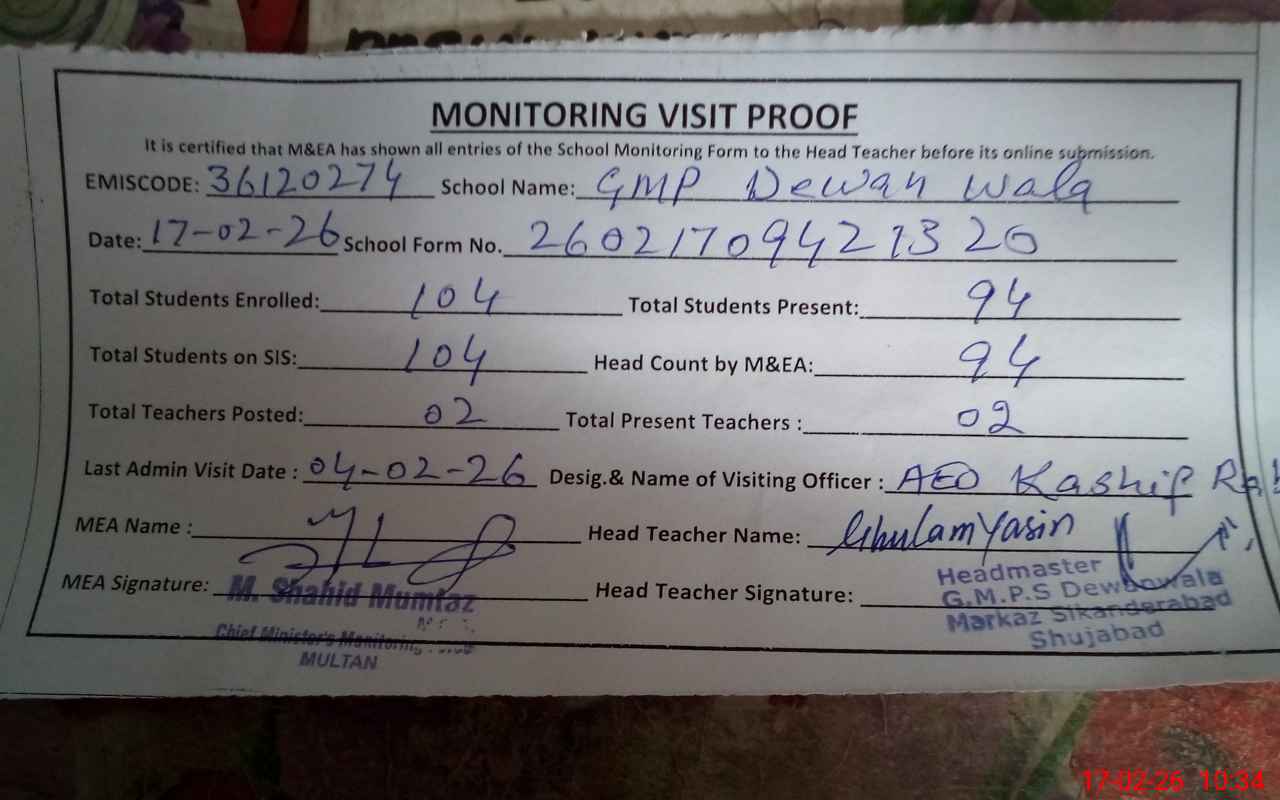 MONITORING VISIT PROOF
It is certified that M&EA has shown all entries of the School Monitoring Form to the Head Teacher before its online submission.
EMISCODE: 36120274 School Name: GMP Dewan Wala
Date: 17-02-26 School Form No. 26021709421320
Total Students Enrolled: 104 Total Students Present: 94
Total Students on SIS: 104 Head Count by M&EA: 94
Total Teachers Posted: 02 Total Present Teachers : 02
Last Admin Visit Date : 04-02-26 Desig.& Name of Visiting Officer : AEO Kashif
MEA Name : Head Teacher Name: Ghulam Yasin
MEA Signature: Head Teacher Signature:
M. Shahid Mumtaz
Chief Minister's Monitoring
MULTAN
Headmaster
G.M.P.S
Markaz Sikanderabad
Shujabad
17-02-26 10:34